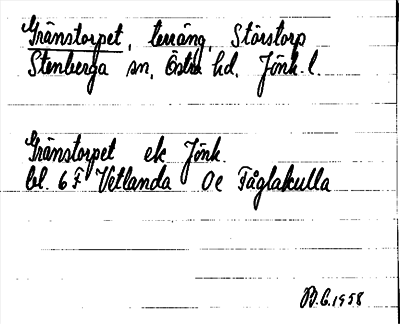 Gränstorpet, terräng, Störstorp
Stenberga sn, Östra hd, Jönk. l.
Gränstorpet ek Jönk.
bl. 6 F Vetlanda Oe Fåglakulla
B.C. 1958